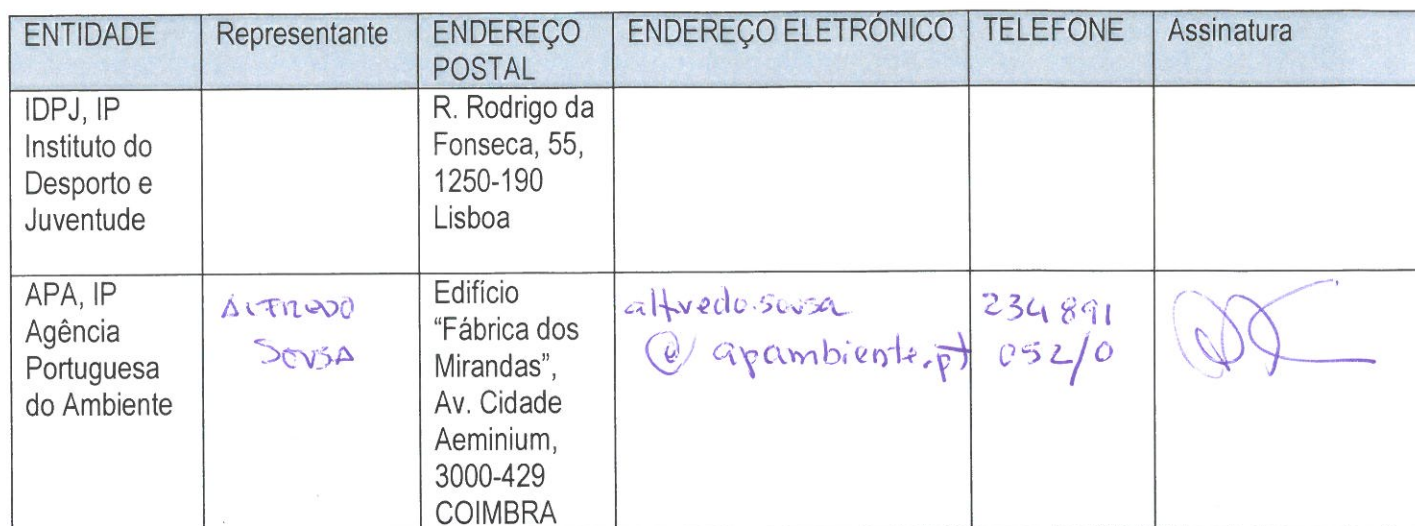 ENTIDADE
Representante
ENDEREÇO
POSTAL
ENDEREÇO ELETRÓNICO
TELEFONE
Assinatura
IDPJ, IP
Instituto do
Desporto e
Juventude
R. Rodrigo da
Fonseca, 55,
1250-190
Lisboa
APA, IP
Agência
Portuguesa
do Ambiente
ALFREDO
SOUSA
Edifício
“Fábrica dos
Mirandas”,
Av. Cidade
Aeminium,
3000-429
COIMBRA
alfredo.sousa
@apambiente.pt
234 891
052/0